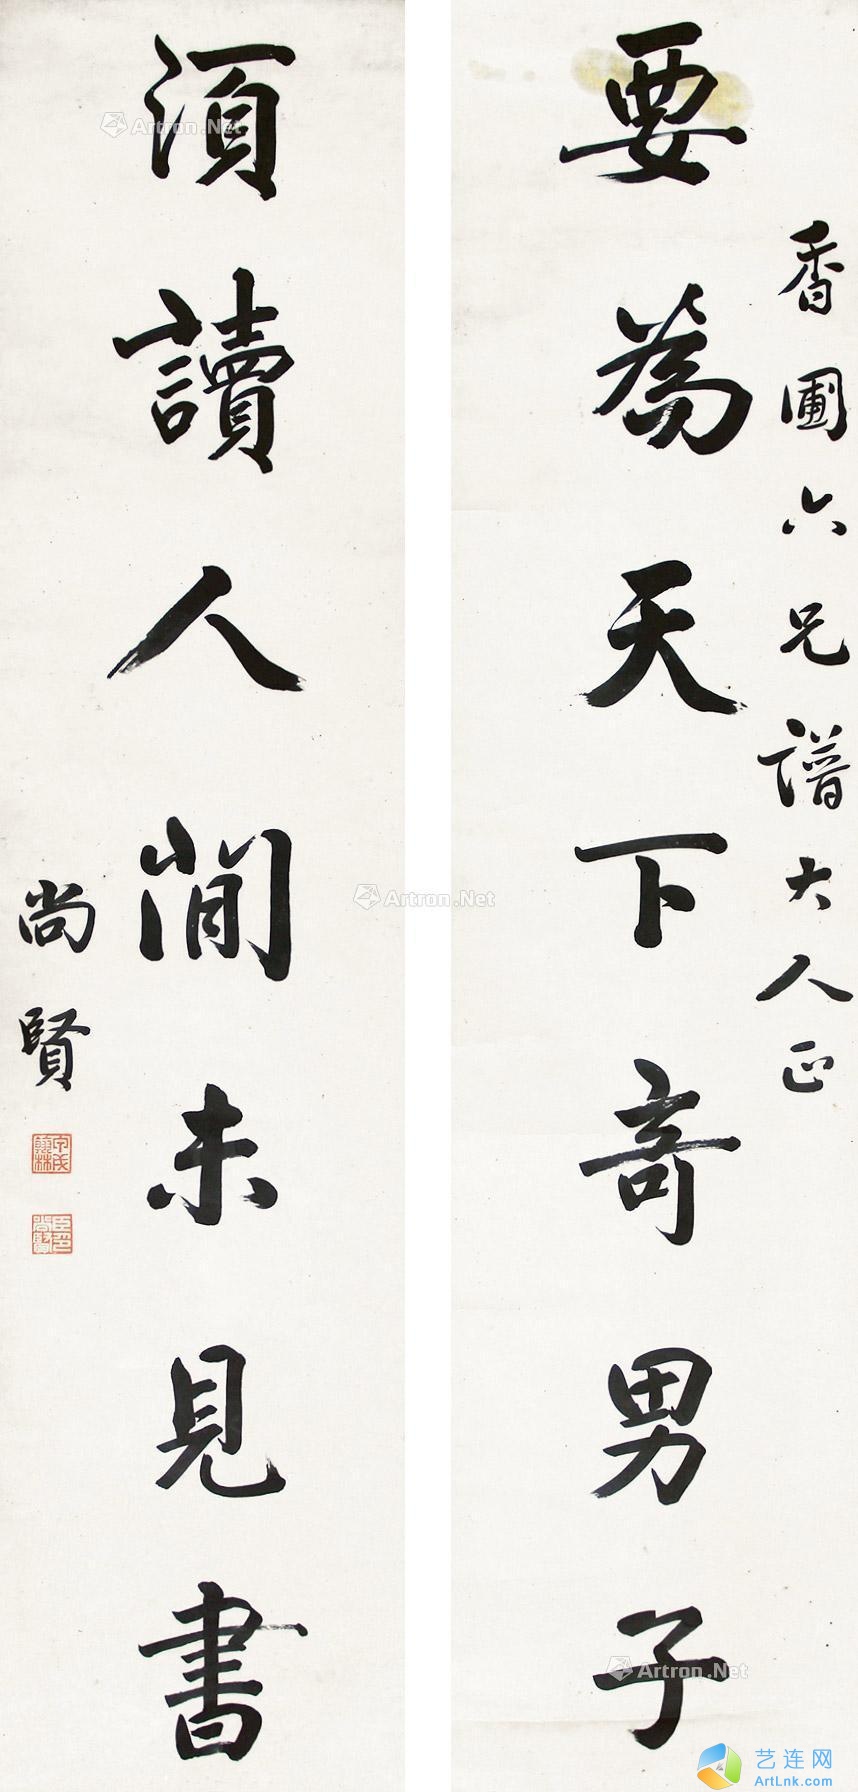 香圃六兄譜大人正
要為天下奇男子
須讀人間未見書
尚賢
臣印尚賢
Artron.Net
Artron.Net
Artron.Net
艺连网
ArtLnk.com